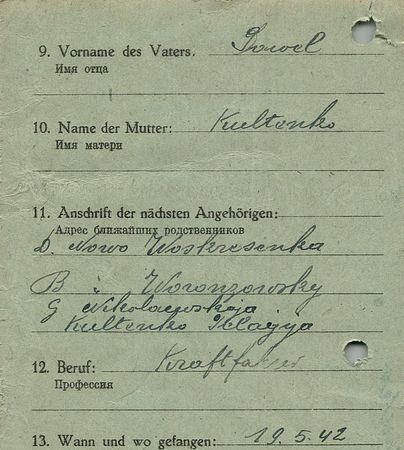 9. Vorname des Vaters. Pawel
Имя отца
10. Name der Mutter: Kultenko
Имя матери
11. Anschrift der nächsten Angehörigen:
Адрес ближайших родственников
D. Nowo Woskresenka
B " Woronzowsky
G Nikolaewskaja
Kultenko Pelagija
12. Beruf: Kraftfahrer
Профессия
13. Wann und wo gefangen: 19.5.42